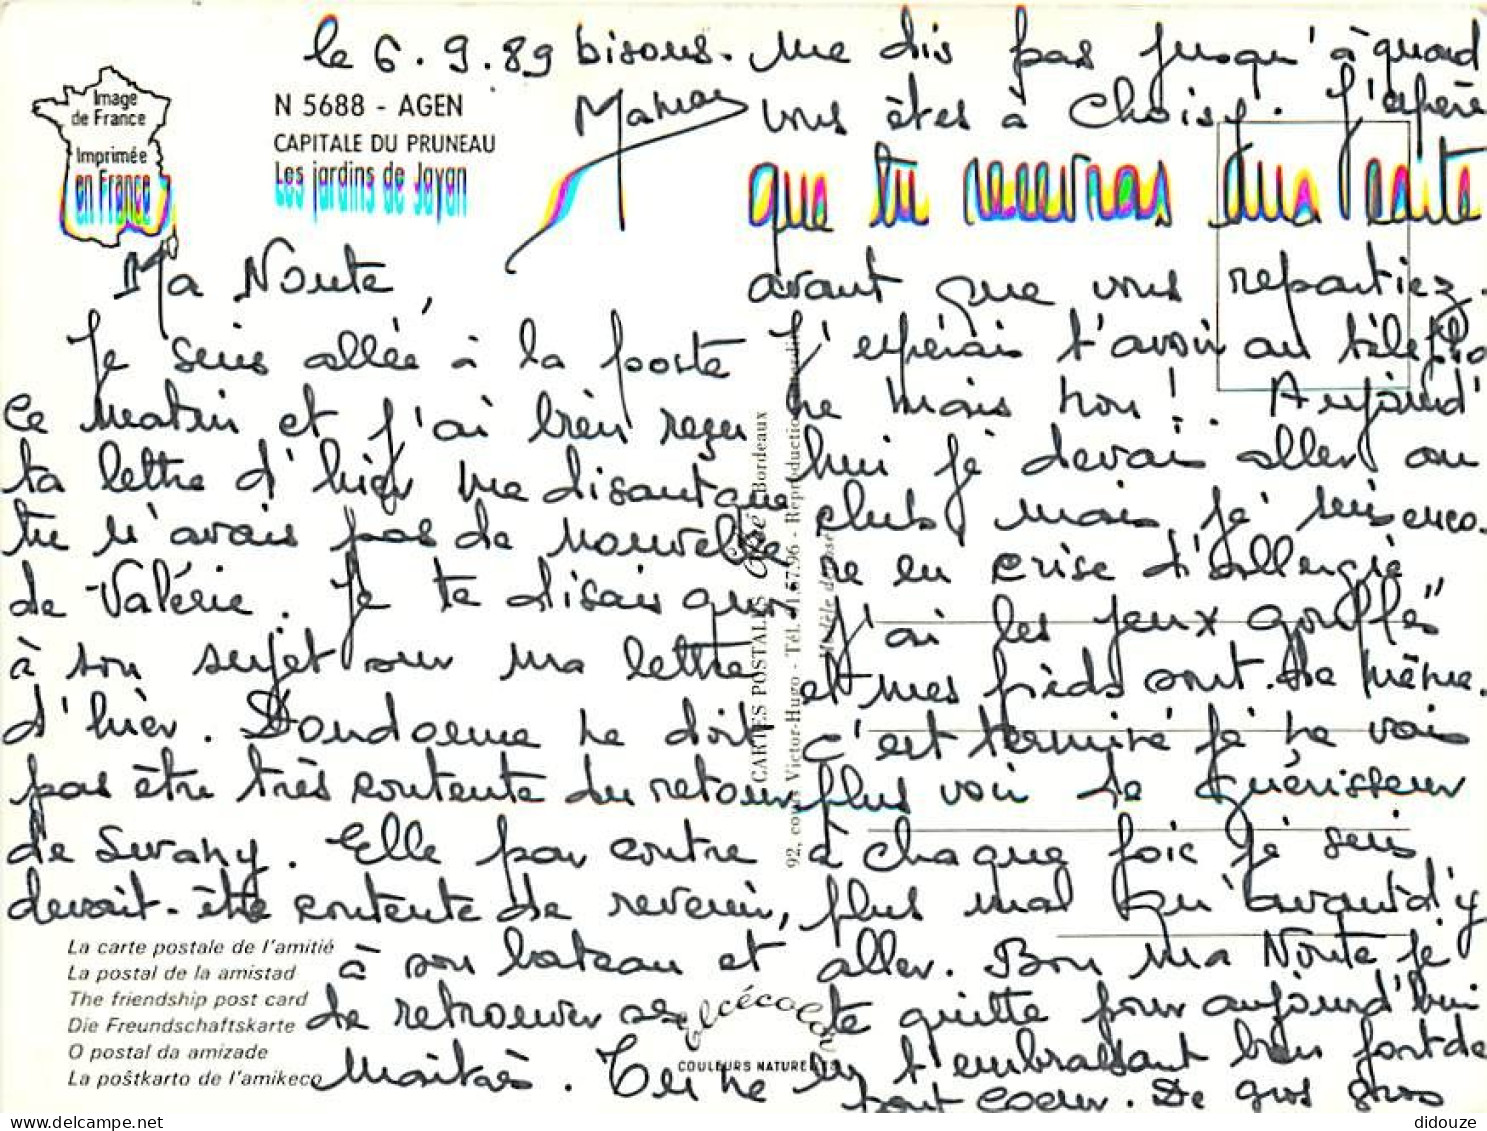 le 6.9.89
Image
de France
Imprimée
en France
N 5688 - AGEN
CAPITALE DU PRUNEAU
Les jardins de Jayan
Ma Noute,
Je suis allée à la poste
ce matin et j'ai bien reçu
ta lettre d'hier me disant que
tu n'avais pas de nouvelle
de Valérie. Je te disais que
à son sujet sur ma lettre
d'hier. ne doit
pas être très contente du retour
de Swany. Elle par contre
devait-être contente de revenir,
à son bateau et
de retrouver ses
Maîtres. Tu ne
La carte postale de l'amitié
La postal de la amistad
The friendship post card
Die Freundschaftskarte
O postal da amizade
La poŝtkarto de l'amikeco
CARTES POSTALES Bordeaux
92, cours Victor-Hugo - Tél. - Reproduction
COULEURS NATURELLES
me dis pas jusqu'à quand
vous êtes à Choisy. J'espère
que tu recevras ma carte
avant que vous repartiez.
J'espérais t'avoir au télépho
ne mais non!. Aujourd'
hui je devais aller au
club mais je suis enco-
re en crise d'allergie
j'ai les yeux gonflés
et mes pieds sont de même.
c'est terminé je ne vais
plus voir le guérisseur
à chaque fois je suis
plus mal qu'avant d'y
aller. Bon ma Noute je
te quitte pour aujourd'hui
en t'embrassant bien fort de
tout coeur. De gros gros
bisous.
didouze